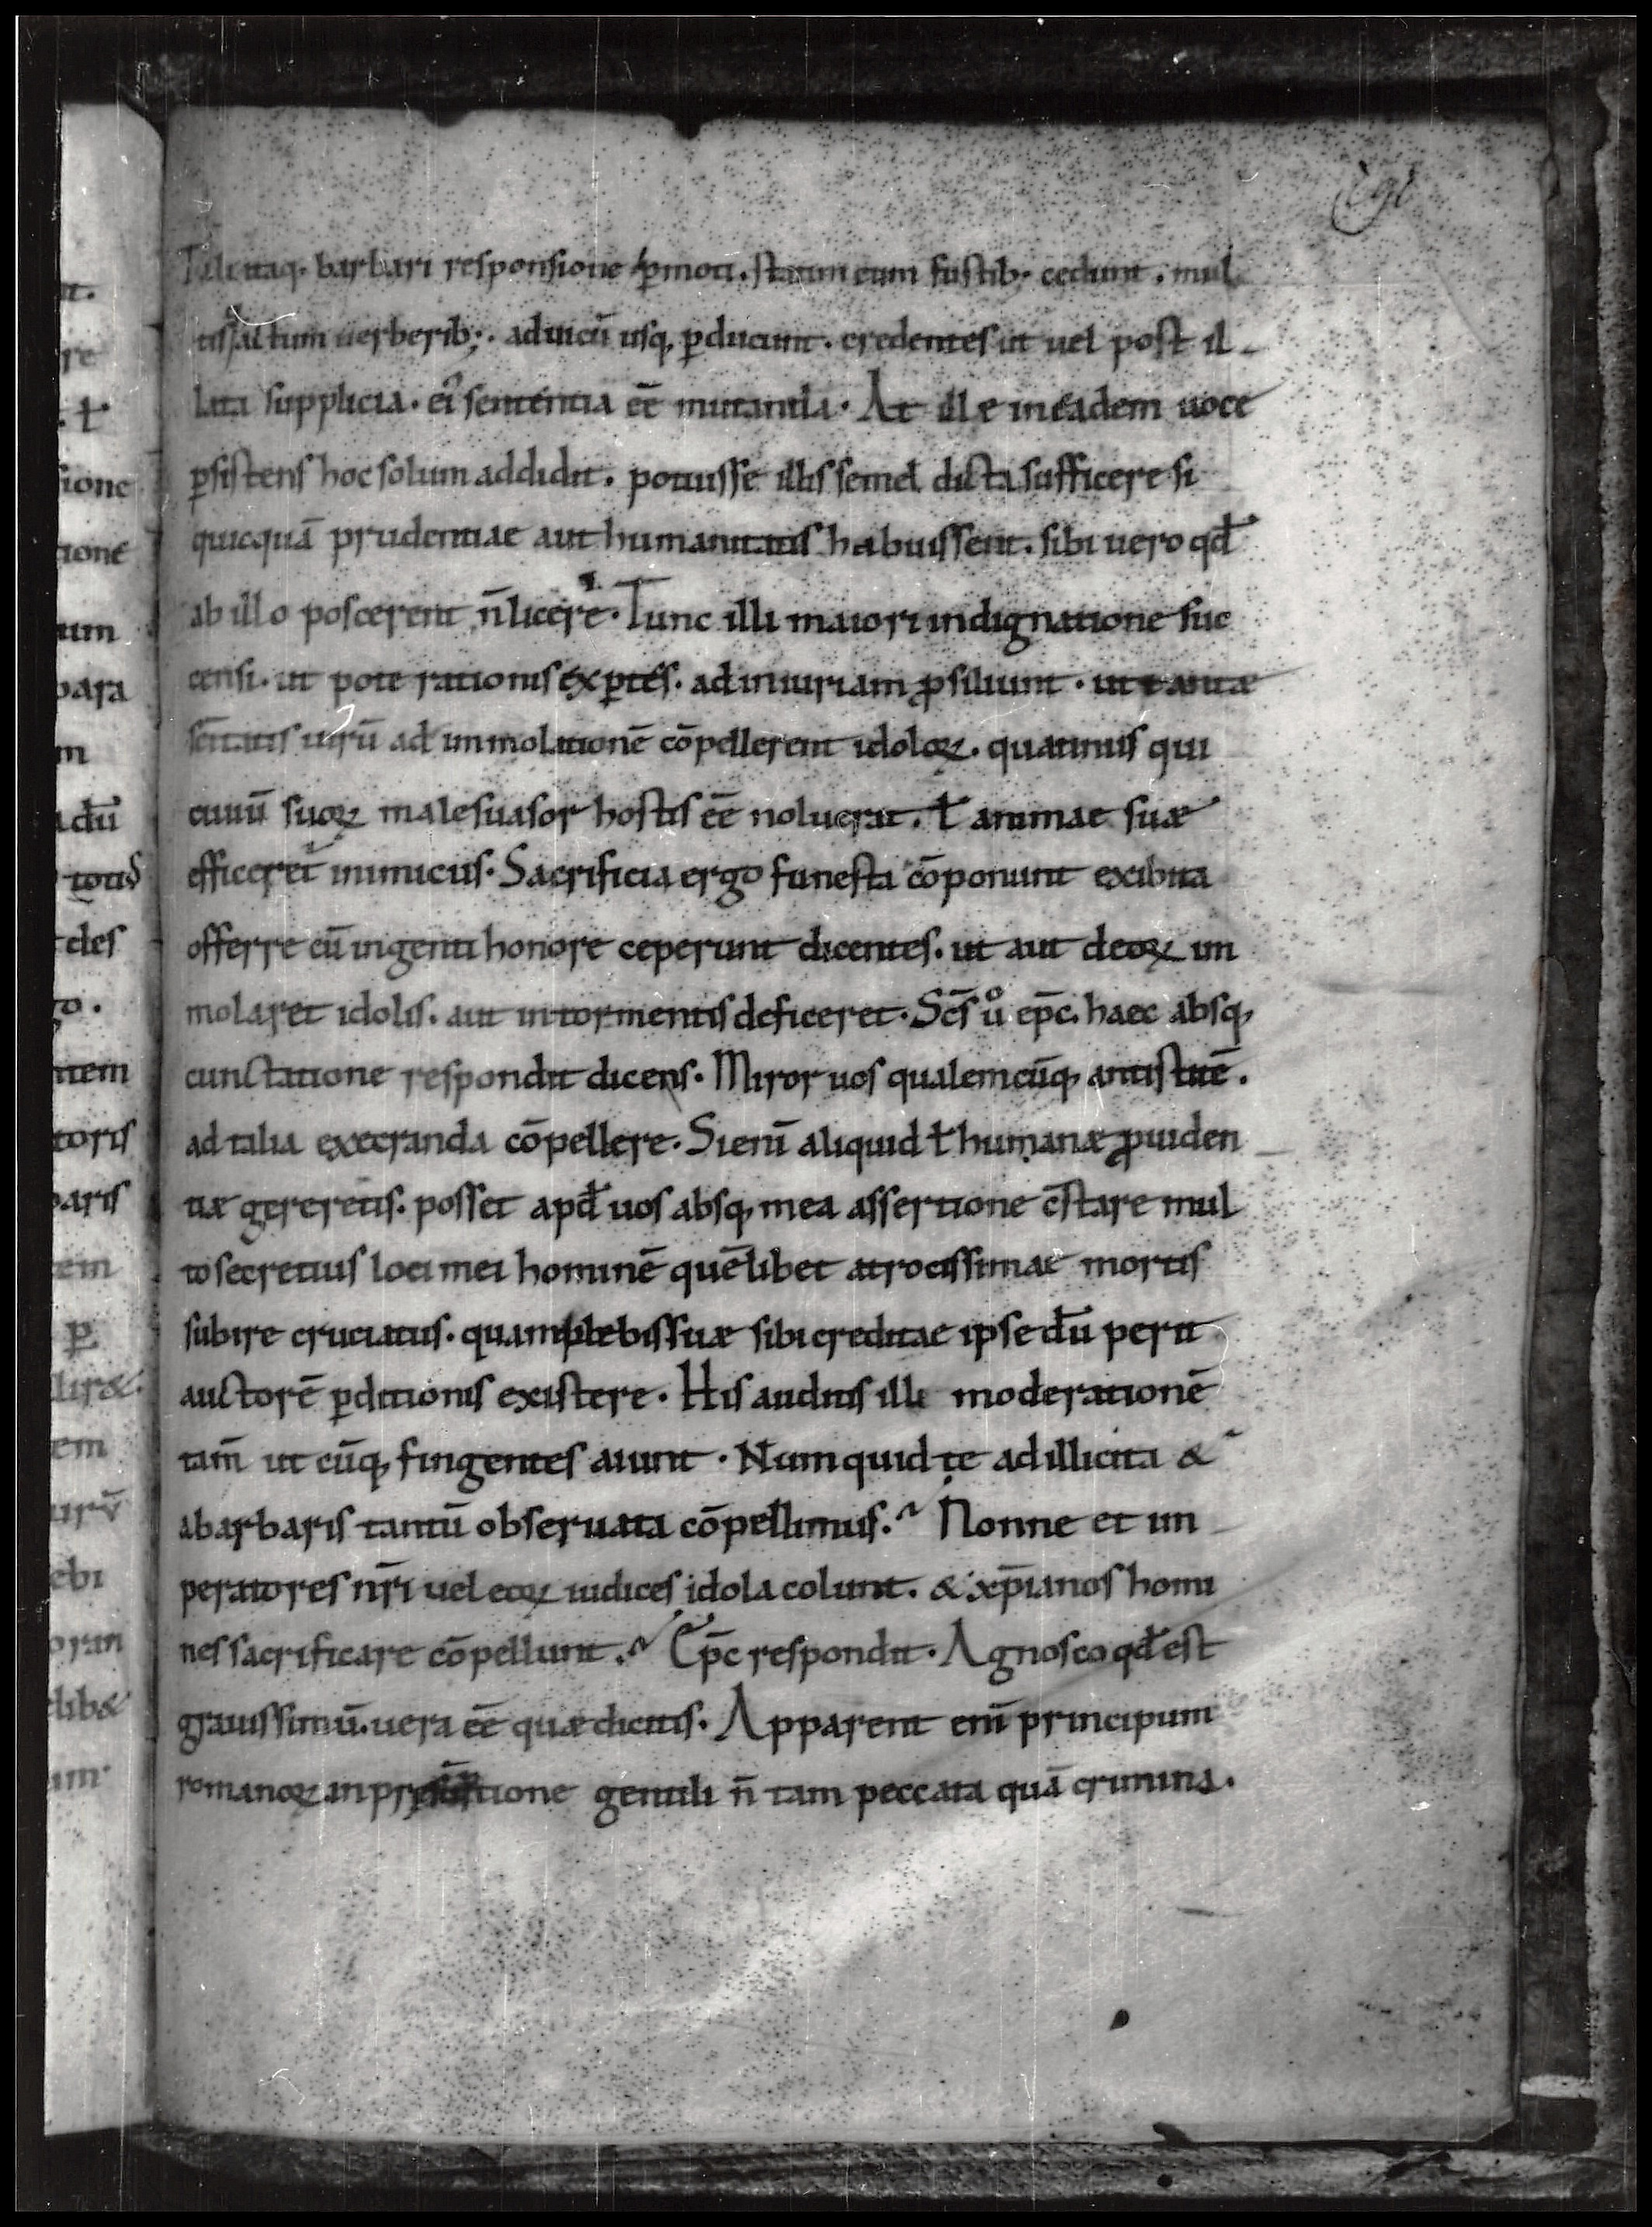 Tali itaq· barbari responsione ꝑmoti· statim eum fustib· cedunt· mul
tisq; actum uerberib;· ad uicū usq; ꝑducunt· credentes ut uel post il
lata supplicia· ei sententia eē mutanda· At ille in eadem uoce
ꝑsistens hoc solum addidit· potuisse illis semel dicta sufficere si
quicquā prudentiae aut humanitatis habuissent· sibi uero qđ
ab illo poscerent n̄ licere· Tunc illi maiori indignatione suc
censi· ut pote rationis exꝑtes· ad iniuriam ꝓsiliunt· ut tantæ
uirū ad immolationē cōpellerent idoloꝝ· quatinus qui
ciuiū suoꝝ malesuasor hostis eē noluerat· ł animae suæ
efficeret inimicus· Sacrificia ergo funesta cōponunt exibita
offerre cū ingenti honore ceperunt dicentes· ut aut deoꝝ im
molaret idolis· aut in tormentis deficeret· Scs̄ uͦ ep̄c haec absq;
cunctatione respondit dicens· Miror uos qualemcūq; antistitē·
ad talia execranda cōpellere· Si enī aliquid ł humanæ ꝓuiden
tiæ gereretis· posset apđ uos absq; mea assertione c̄stare mul
to secretius loci mei hominē quēlibet atrocissimae mortis
subire cruciatus· quam plebis suæ sibi creditae ipse dū perit
auctorē ꝑditionis existere· His auditis illi moderationē
tam̄ ut cūq; fingentes aiunt· Numquid te ad illicita &
a barbaris tantū obseruata cōpellimus· Nonne et im
peratores nr̄i uel eoꝝ iudices idola colunt· & xp̄ianos homi
nes sacrificare cōpellunt· Ep̄c respondit· Agnosco qđ est
grauissimū· uera eē quæ dicitis· Apparent enī principum
romanoꝝ in gentili n̄ tam peccata quā crimina·